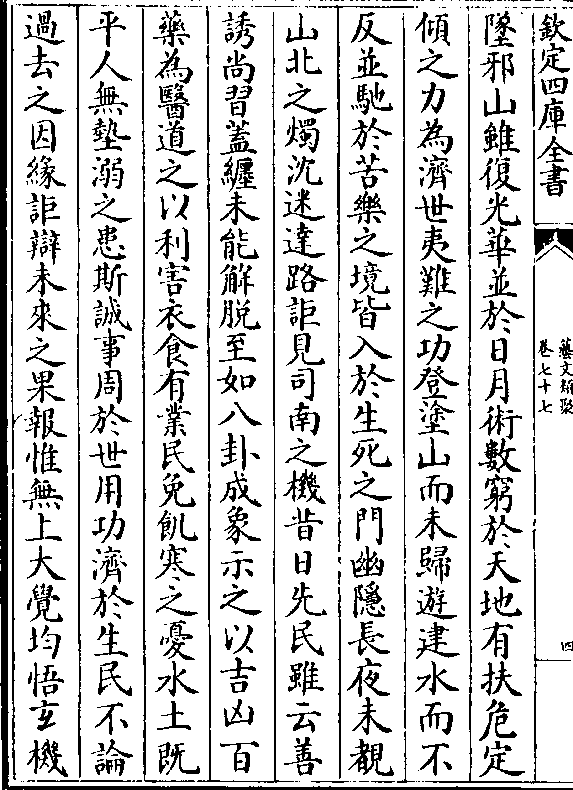 欽定四庫全書
藝文類聚
卷七十七
四
墜邪山雖復光華並於日月術數窮於天地有扶危定
傾之力為濟世夷難之功登塗山而未歸遊建水而不
反並馳於苦樂之境皆入於生死之門幽隱長夜未覩
山北之燭沉迷達路詎見司南之機昔日先民雖云善
誘尚習蓋纏未能解脫至如八卦成象示之以吉凶百
藥為醫道之以利害衣食有業民免飢寒之憂水土既
平人無墊溺之患斯誠事周於世用功濟於生民不論
過去之因緣詎辯未來之果報惟無上大覺均悟玄機